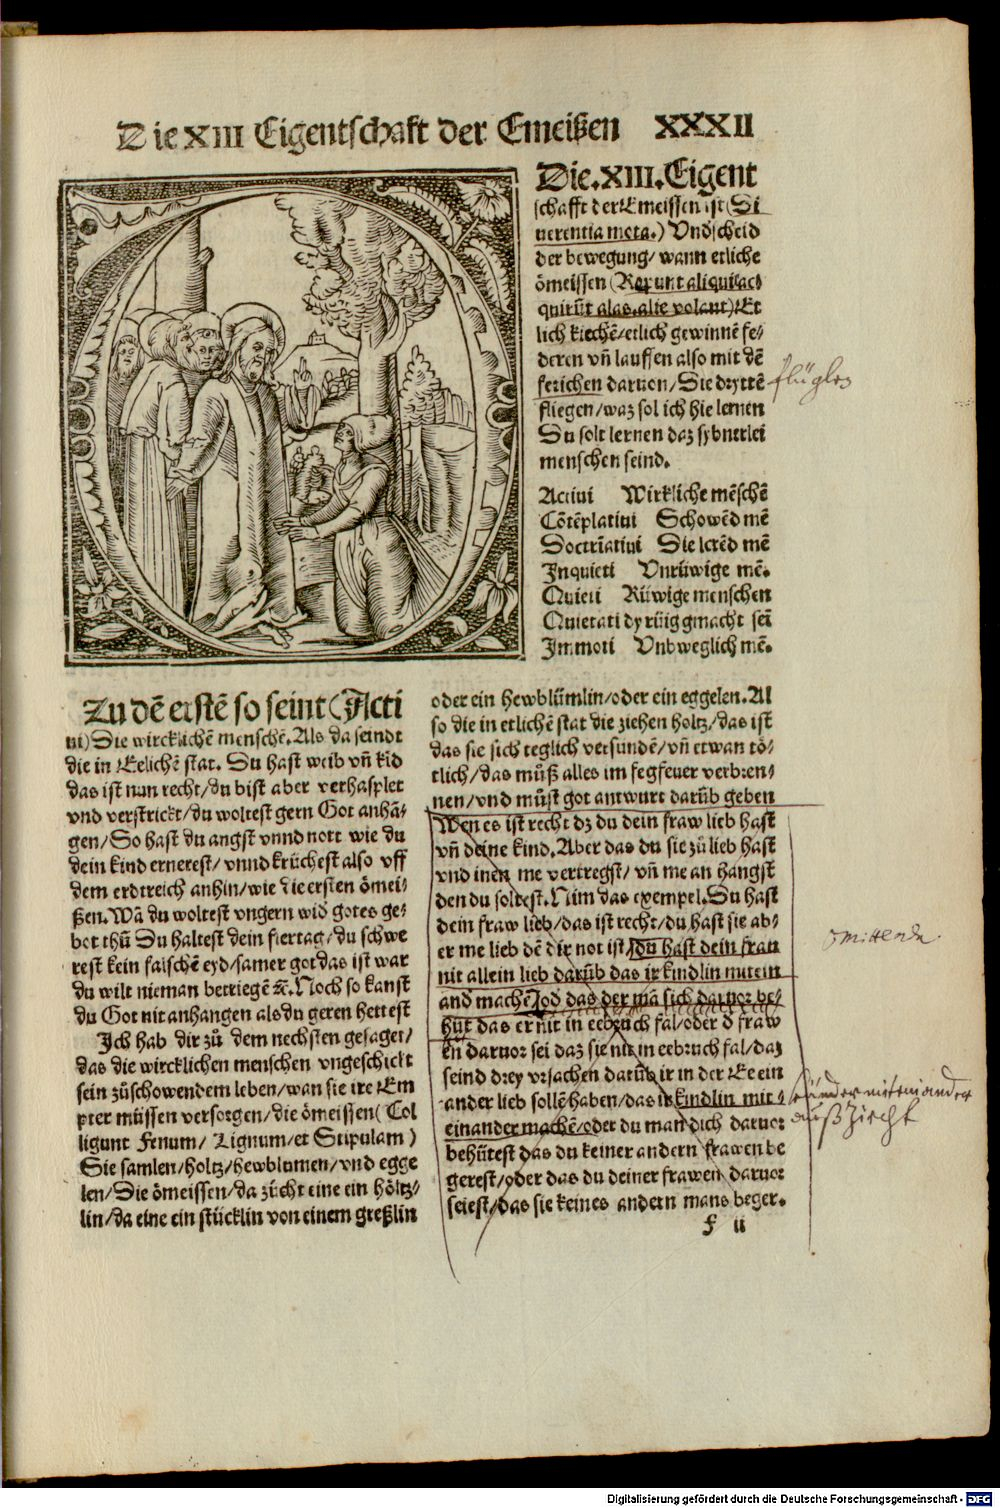 Die XIII Eigentschafft der Emeißen XXXII
Die.XIII.Eigent
schafft der Emeissen ist (Di
uerentia mota.) Vndscheid
der bewegung/ wann etliche
ömeissen (Repunt aliqui/ac⸗
quirūt alas.alie volant) Et
lich kiechē/etlich gewinnē fe⸗
deren vñ lauffen also mit dē
ferichen daruon/Die dryttē
fliegen/waz sol ich hie lernen
Du solt lernen daz sybnerlei
menschen seind.
flüglen
Actiui Wirkliche mēschē
Cōtēplatiui Schowēd mē
Doctrīatiui Die lerēd mē
Inquieti Vnrüwige mē.
Quieti Rüwige menschen
Quietati dy rüig gmacht seī
Immoti Vnbweglich mē.
Zu dē erstē so seint (Acti
ui) Die wircklichē menschē. Als da seindt
die in Eelichē stat. Du hast weib vñ kīd
das ist nun recht/du bist aber verhasplet
vnd verstrickt/du woltest gern Got anhā⸗
gen/So hast du angst vnnd nott wie du
dein kind ernerest/vnnd krüchest also vff
dem erdtreich anhin/wie die ersten ömei⸗
ßen. Wā du woltest vngern wid gotes ge⸗
bot thū Du haltest dein fiertag/du schwe
rest kein falschē eyd/samer got das ist war
du wilt nieman betriegē ꝛc. Noch so kanst
du Got nit anhangen als du geren hettest
Ich hab dir zů dem nechsten gesaget/
das die wircklichen menschen vngeschickt
sein zůschowendem leben/wan sie ire Em
pter müssen versorgen/die ömeissen (Col
ligunt Fenum/ Lignum/et Stipulam)
Sie samlen/holtz/hewblumen/vnd egge
len/Die ömeissen/da zücht eine ein höltz⸗
lin/da eine ein stücklin von einem greßlin
oder ein hewblümlin/oder ein eggelen. Al
so die in etlichē stat die ziehen holtz/das ist
das sie sich teglich versündē/vñ etwan tö⸗
tlich/das můß alles im fegfeuer verbren⸗
nen/vnd můst got antwurt darūb geben
Wen es ist recht dz du dein fraw lieb hast
vñ deine kind. Aber das du sie zů lieb hast
vnd inen me vertregst/vñ me an hangst
den du soltest. Nim das exempel. Du hast
dein fraw lieb/das ist recht/du hast sie ab⸗
er me lieb dē dir not ist/du hast dein frau
nit allein lieb darūb das ir kindlin mitein
omittenda.
and machē/od das der mā sich daruor be⸗
hüt das er nit in eebruch fal/oder d fraw
en daruor sei daz sie nit in eebruch fal/daz
seind drey vrsachen darūb ir in der Ee ein
ander lieb sollē haben/das ir kindlin mit⸗
einander machē/oder du man dich daruor
kinder miteinander
aufzücht
behütest das du keiner andern frawen be
gerest/oder das du deiner frawen daruor
seiest/das sie keines andern mans beger.
f ii
Digitalisierung gefördert durch die Deutsche Forschungsgemeinschaft - DFG